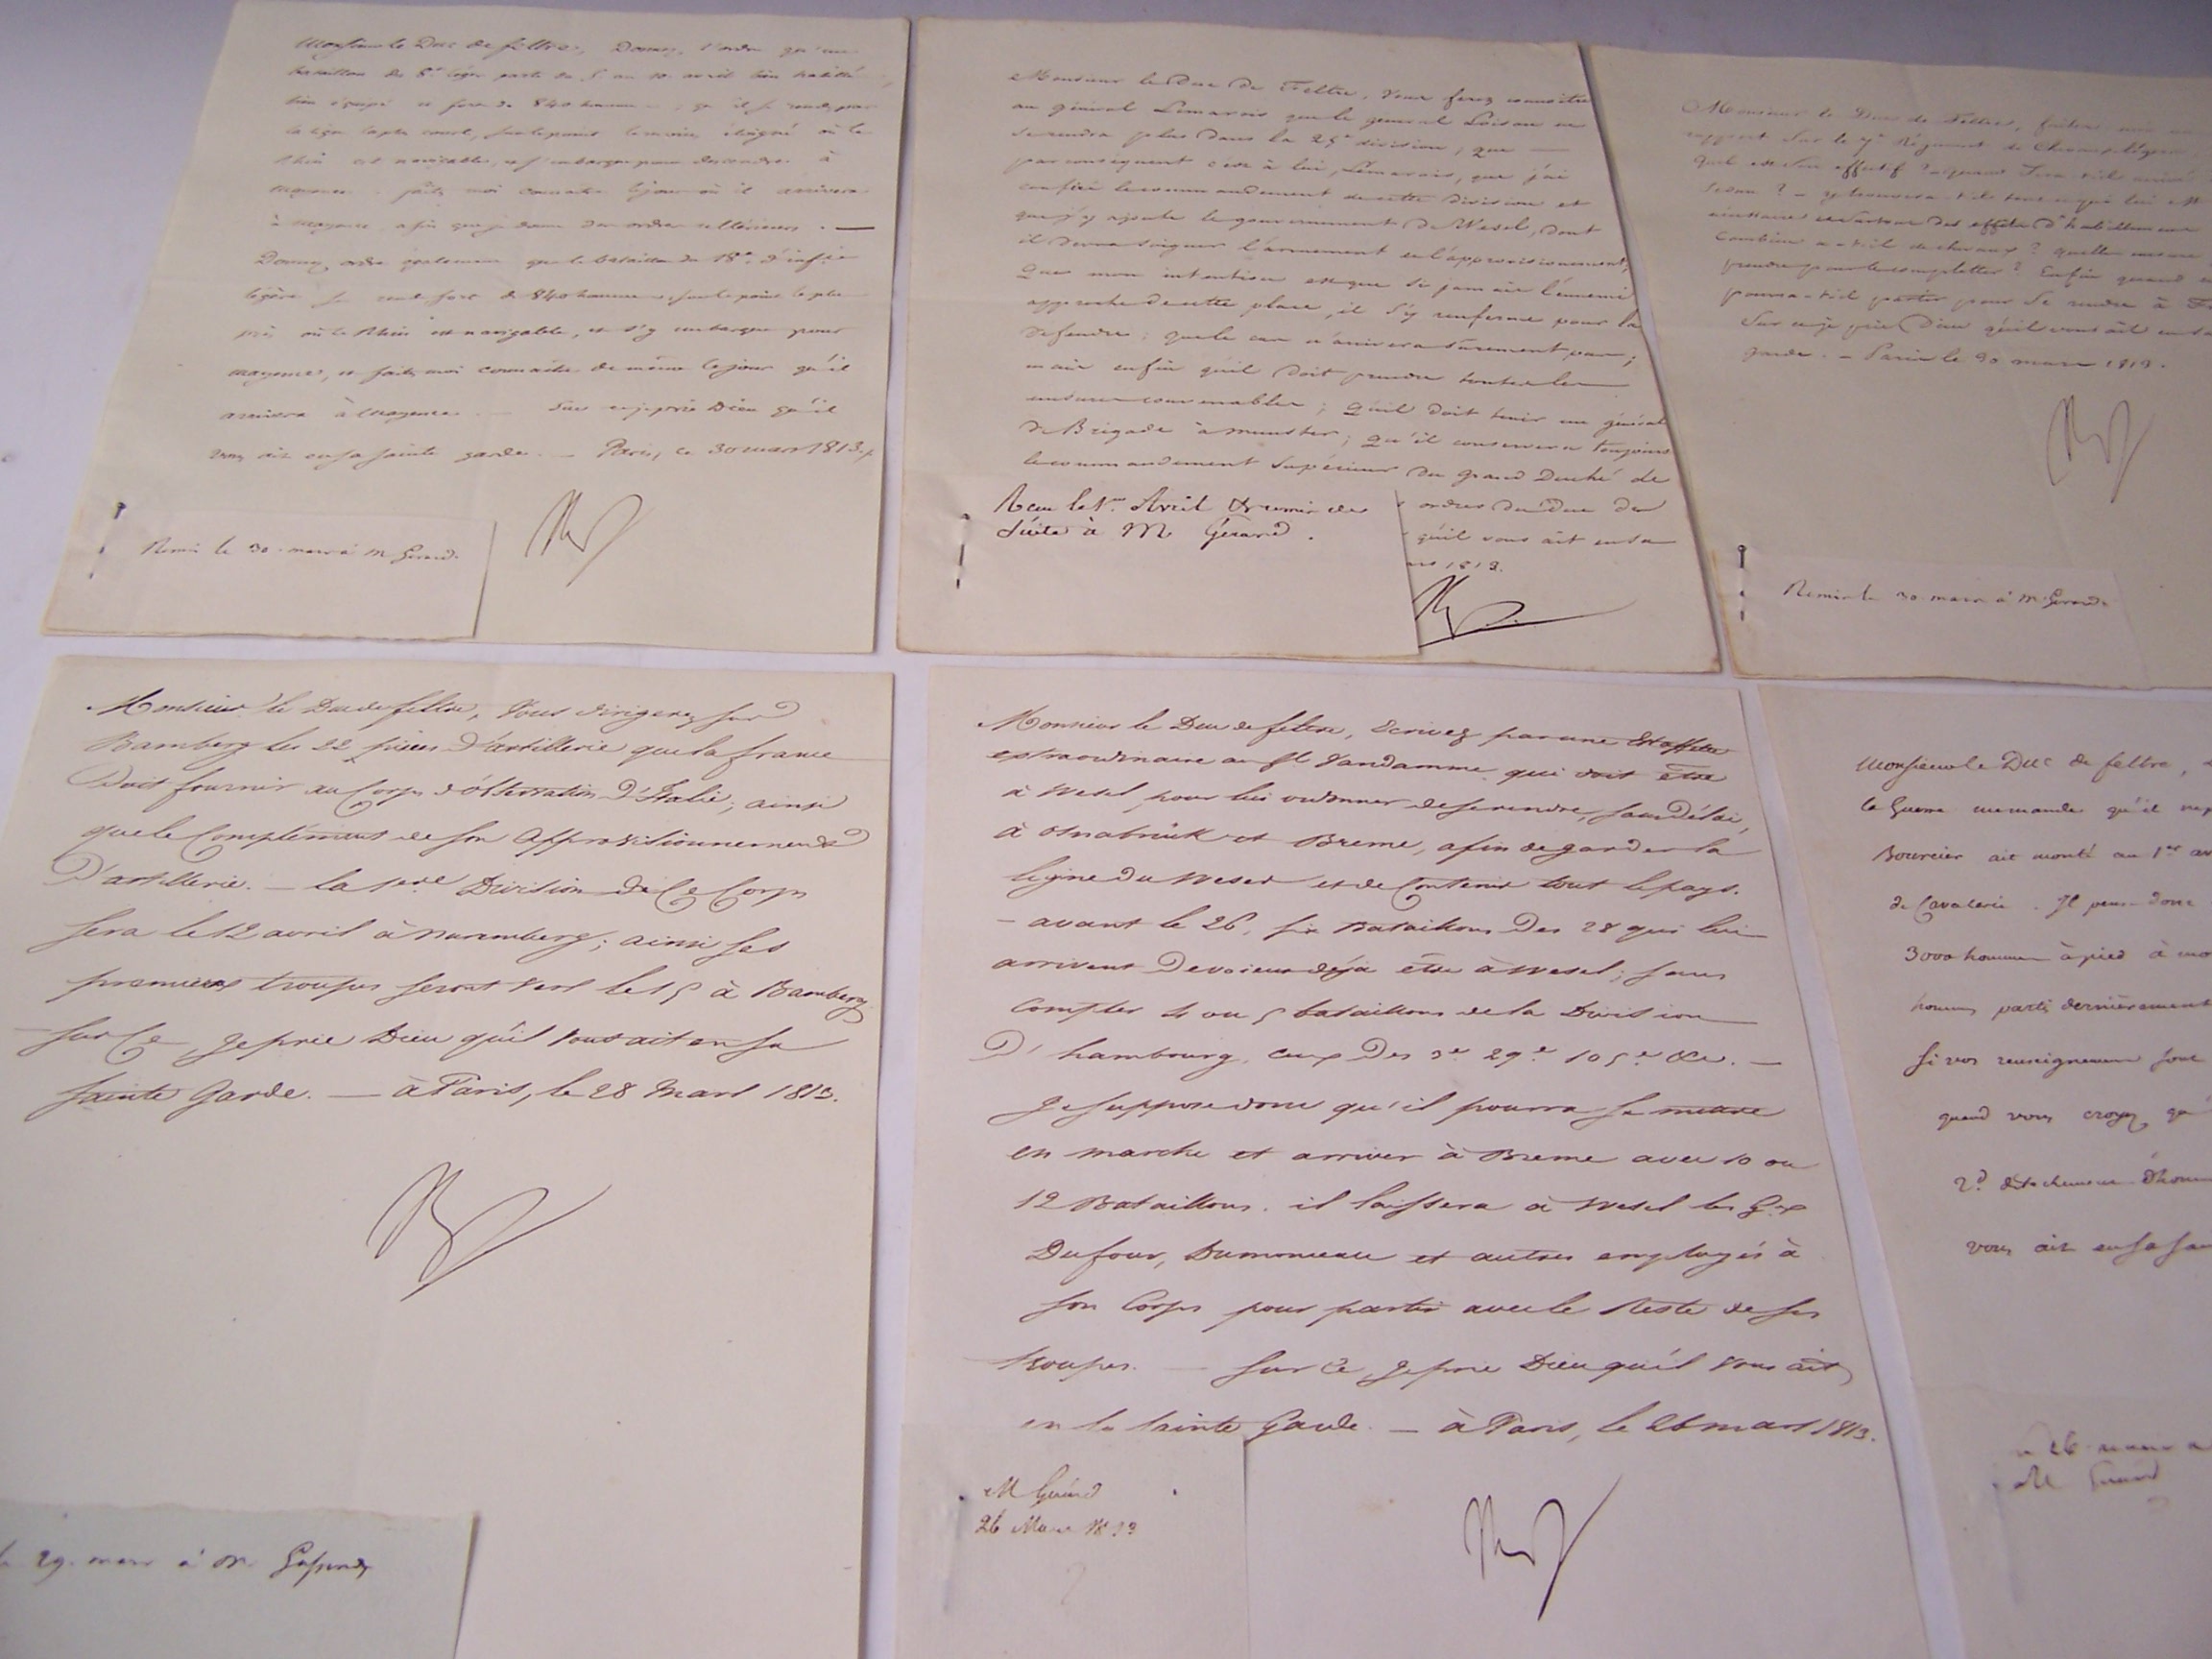 Monsieur le Duc de feltre, Donnez l'ordre qu'un
bataillon du 8e léger parte du 5 au 10 avril bien habillé
bien équipé et fort de 840 hommes, qu'il se rende par
la ligne la plus court, sur le point le moins éloigné où le
Rhin est navigable, et s'embarque pour descendre à
mayence. faites moi connaitre le jour où il arrivera
à mayence, afin que je donne des ordres ultérieurs. —
Donnez ordre également que le bataillon du 18e d'infie
légère se rende fort de 840 hommes, sur le point le plus
près où le Rhin est navigable, et s'y embarque pour
mayence, et faites moi connaitre de même le jour qu'il
arrivera à Mayence. — Sur ce je prie Dieu qu'il
vous ait en sa sainte garde. — Paris, ce 30 mars 1813.
Remis le 30 mars à M Gerard.
Monsieur le Duc de Feltre, vous ferez connoitre
au général Lemarois que le général Loison ne
se rendra plus dans la 25e division; que —
par conséquent c'est à lui, Lemarois, que j'ai
confié le commandement de cette division et
que j'y ajoute le gouvernement de Wesel, dont
il devra soigner l'armement et l'approvisionnement;
Que mon intention est que si jamais l'ennemi
approche de cette place, il s'y renferme pour la
défendre; que le cas n'arrivera surement pas;
mais enfin qu'il doit prendre toutes les
mesures convenables; Qu'il doit tenir un général
de Brigade à Munster; Qu'il conservera toujours
le commandement supérieur du grand Duché de
ordres du Duc de
qu'il vous ait en sa
1813.
Reçu le 1er Avril & remis de
suite à M Gérard.
Monsieur le Duc de Feltre, faites moi un
rapport sur le 7e Régiment de Chevau-légers
Quel est son effectif? quand sera-t-il arrivé à
Sedan? — y trouvera-t-il tout ce qui lui est
nécessaire surtout des effets d'habillement
Combien a-t-il de chevaux? quelles mesures
prendre pour le completter? Enfin quand
pourra-t-il partir pour se rendre à
Sur ce je prie Dieu qu'il vous ait en sa
garde. — Paris le 30 mars 1813.
Remis le 30 mars à M. Gerard.
Monsieur le Duc de feltre, Vous dirigerez sur
Bamberg les 22 pièces d'artillerie que la france
Doit fournir au Corps d'Observation d'Italie; ainsi
que le Complément de son Approvisionnement
D'artillerie. — la 1ere Division de Ce Corps
sera le 12 avril à Nuremberg; ainsi ses
premieres troupes seront vers le 15 à Bamberg
— Sur Ce je prie Dieu qu'il vous ait en sa
sainte Garde. — à Paris, le 28 Mars 1813.
le 29 mars à M. Gassendi
Monsieur le Duc de feltre, Ecrivez par une Estaffette
extraordinaire au Gl Vandamme qui doit être
à Wesel, pour lui ordonner de se rendre, sans Délai,
à Osnabrück et Breme, afin de garder la
ligne du Weser et de Contenir tout le pays.
— avant le 26, six Bataillons Des 28 qui lui
arrivent Devoient déjà être à Wesel; sans
Compter 4 ou 5 bataillons de la Division
D'hambourg, ceux Des 3e 29e 105e &a. —
Je suppose donc qu'il pourra se mettre
en marche et arriver à Breme avec 10 ou
12 Bataillons. il laissera à Wesel les Gaux
Dufour, Dumonceau et autres employés à
son Corps pour partir avec le Reste de ses
troupes. — Sur Ce, Je prie Dieu qu'il vous ait
en sa sainte Garde. — à Paris, le 26 mars 1813.
M Gérard
26 Mars 1813
Monsieur le Duc de feltre,
la Guerre me mande qu'il
Bourcier ait monté au 1er av
de Cavalerie. Il peut donc
3000 hommes à pied à
hommes partis dernièrement
si vos renseignemens sont
quand vous croyez qu'
2d détachement d'hom
vous ait en sa sain
26 mars a
M Gerard